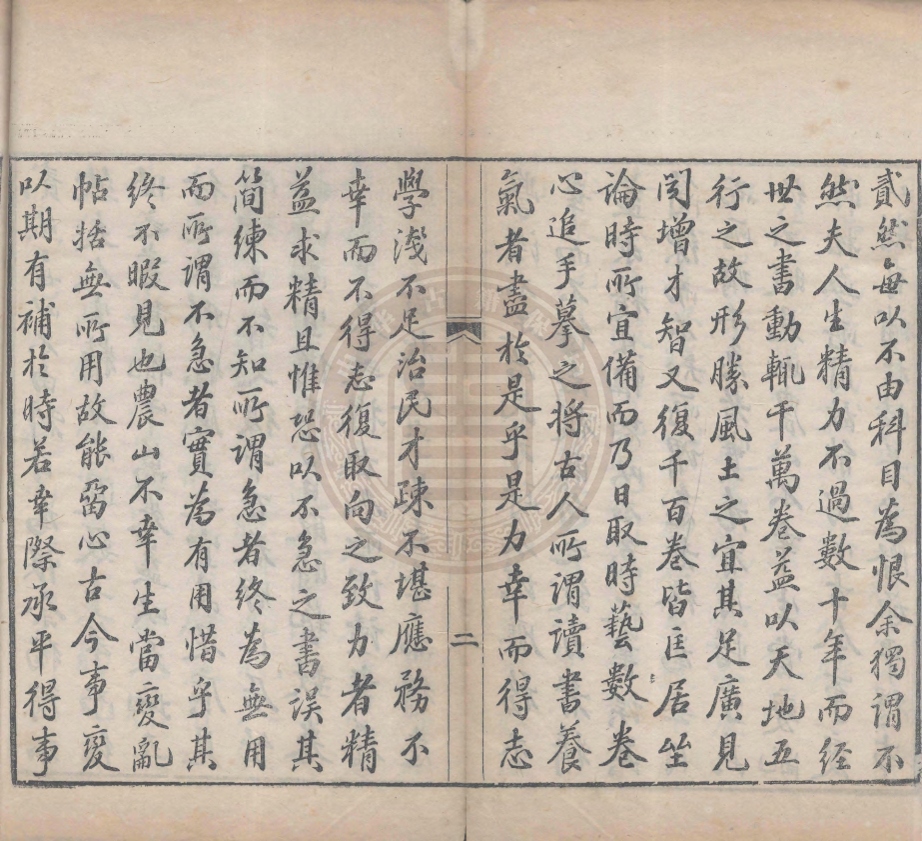 貳然每以不由科目為恨余獨謂不
然夫人生精力不過數十年而经
世之書動輒千萬卷益以天地五
行之故形勝風土之宜其足廣見
聞增才智又復千百卷皆匡居坐
論時所宜備而乃日取時藝數卷
心追手摹之将古人所謂讀書養
氣者盡扵是乎是力幸而得志
學淺不足治民才踈不堪應務不
幸而不得志復取向之致力者精
益求精且惟恐以不急之書误其
簡練而不知所謂急者终為無用
而所謂不急者實為有用惜乎其
终不暇見也農山不幸生當變亂
帖括無所用故能留心古今事變
以期有補扵時若幸際承平得事
二